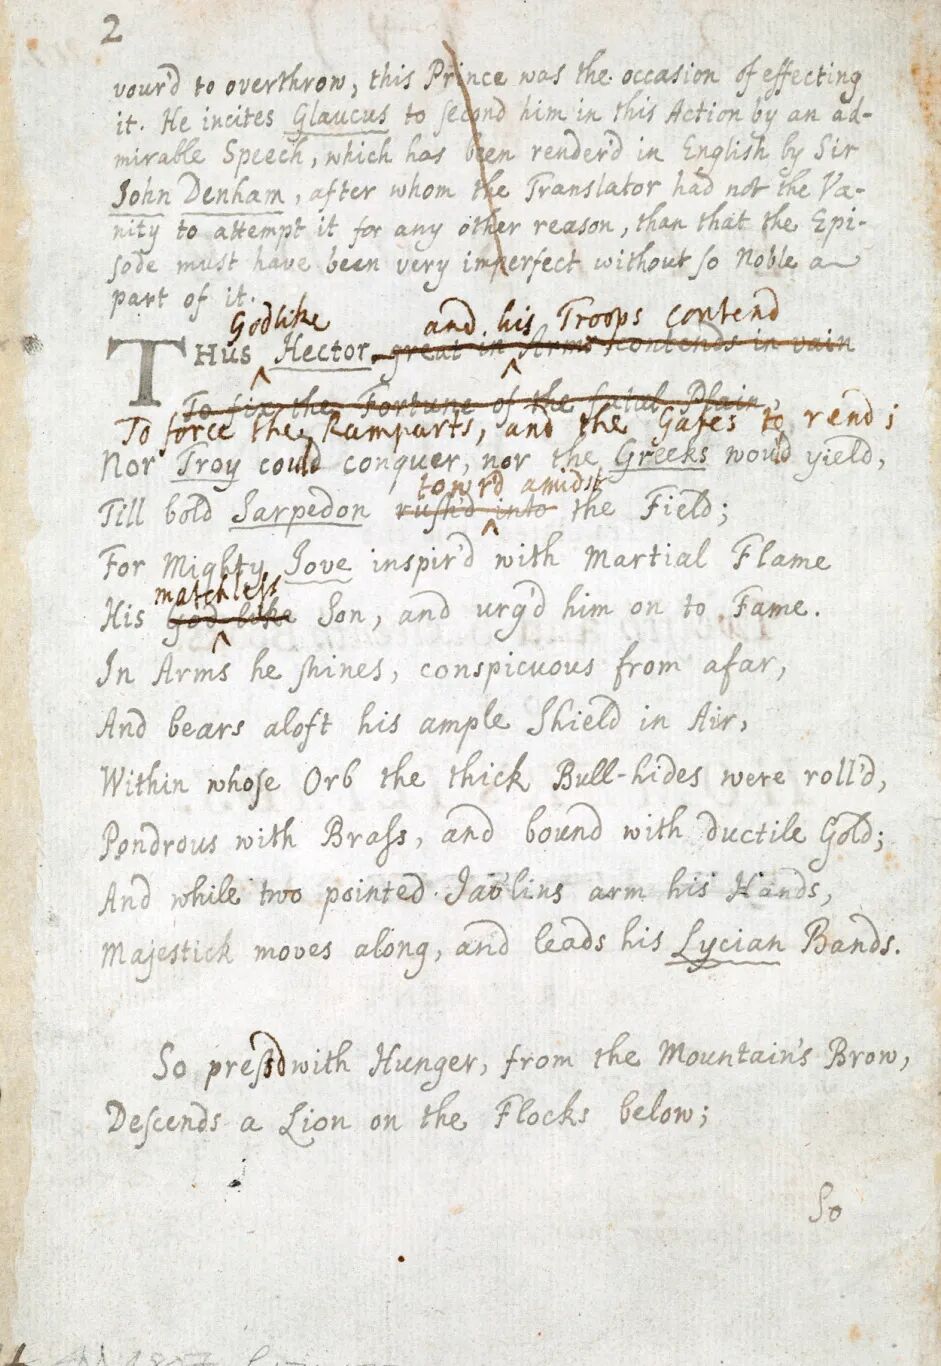 2
vour'd to overthrow, this Prince was the occasion of effecting
it. He incites Glaucus to second him in this Action by an ad-
mirable Speech, which has been render'd in English by Sir
John Denham, after whom the Translator had not the Va-
nity to attempt it for any other reason, than that the Epi-
sode must have been very imperfect without so Noble a
part of it.
Godlike and his Troops contend
THUS Hector, great in Arms, contends in vain
To fix the Fortune of the fatal Plain,
To force the Ramparts, and the Gates to rend;
Nor Troy could conquer, nor the Greeks would yield,
tow'rd amidst
Till bold Sarpedon rush'd into the Field;
For Mighty Jove inspir'd with Martial Flame
matchless
His God-like Son, and urg'd him on to Fame.
In Arms he shines, conspicuous from afar,
And bears aloft his ample Shield in Air,
Within whose Orb the thick Bull-hides were roll'd,
Pondrous with Brass, and bound with ductile Gold;
And while two pointed Jav'lins arm his Hands,
Majestick moves along, and leads his Lycian Bands.
So press'd with Hunger, from the Mountain's Brow,
Descends a Lion on the Flocks below;
So